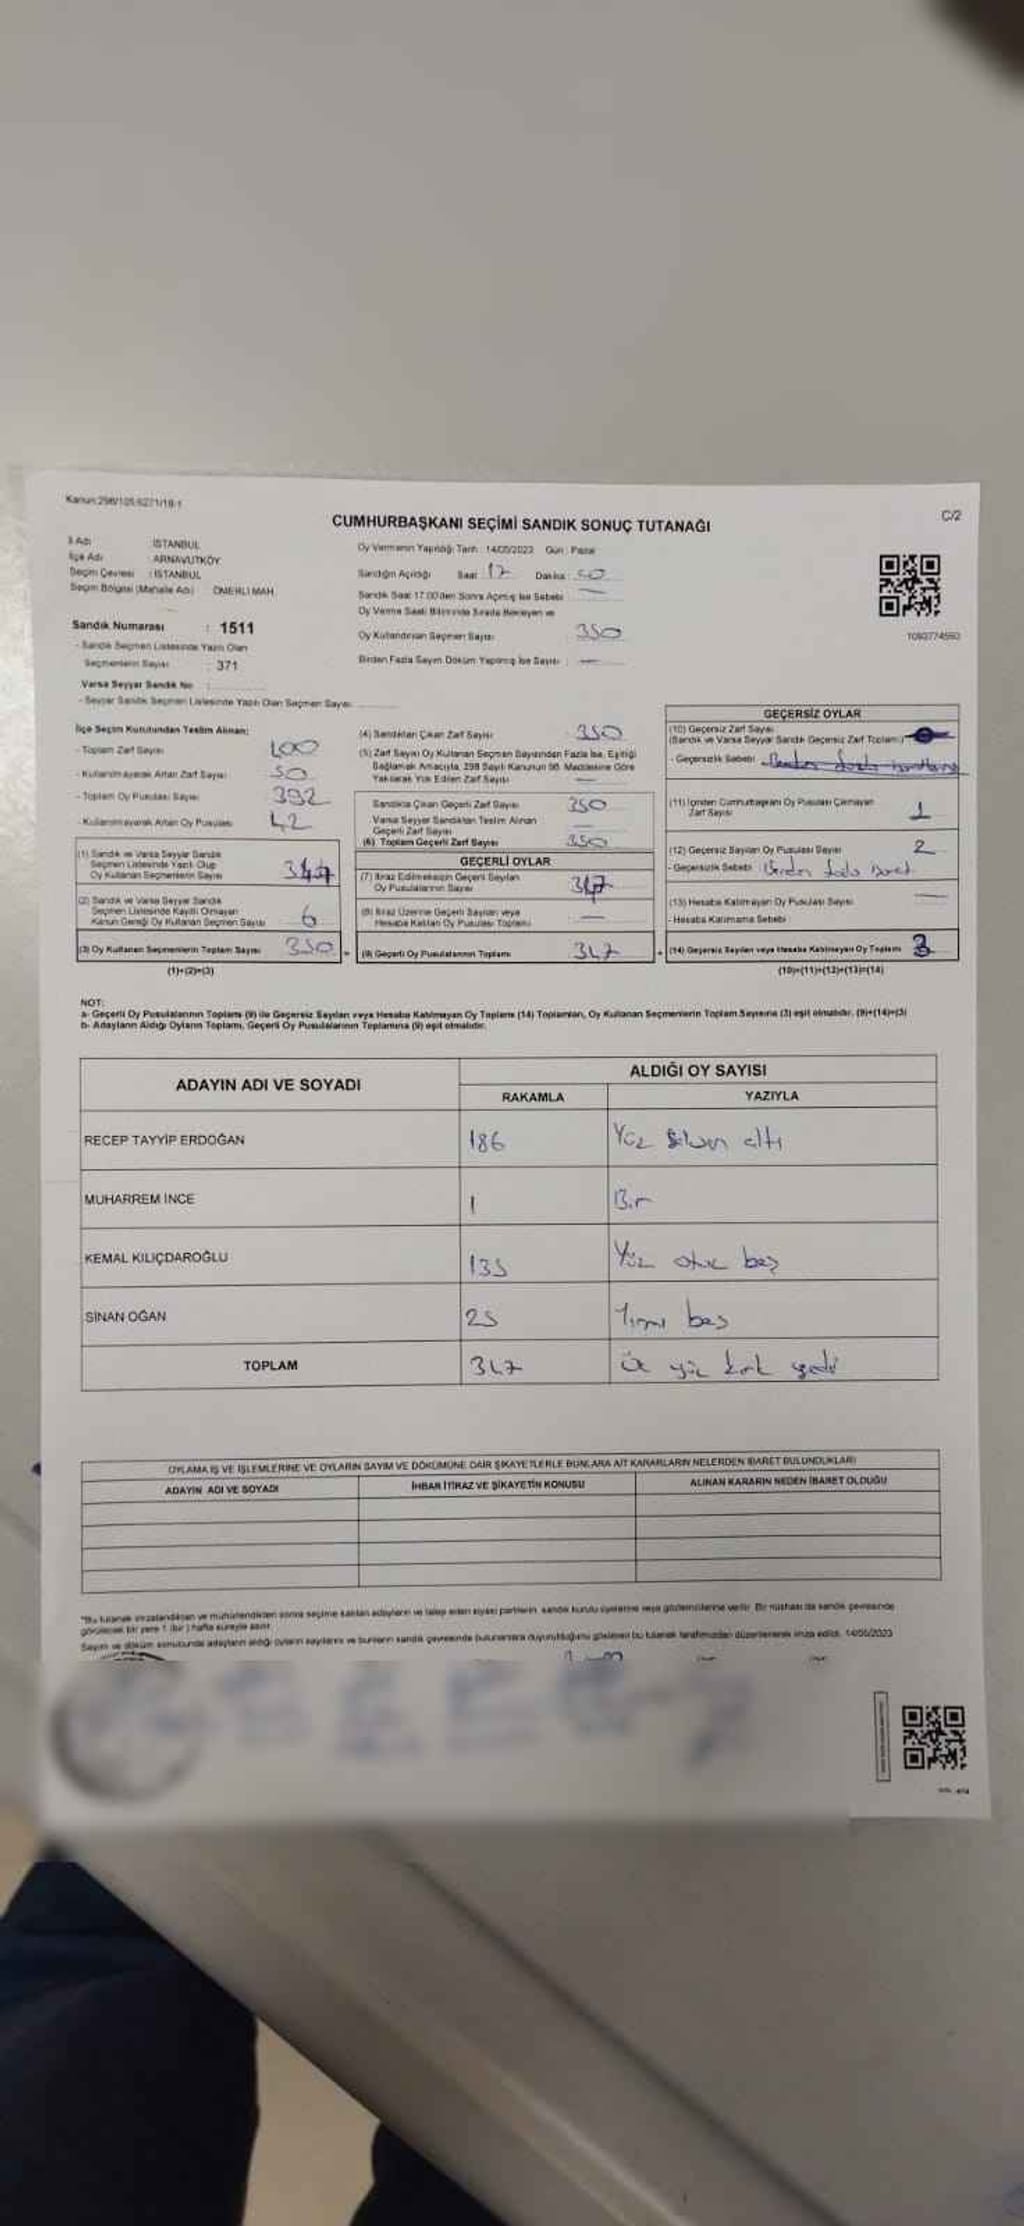 Kanun:298/105;6271/18-1
C/2
CUMHURBAŞKANI SEÇİMİ SANDIK SONUÇ TUTANAĞI
İl Adı : İSTANBUL
İlçe Adı : ARNAVUTKÖY
Seçim Çevresi : İSTANBUL
Seçim Bölgesi (Mahalle Adı) ÖMERLİ MAH.
Sandık Numarası : 1511
- Sandık Seçmen Listesinde Yazılı Olan
Seçmenlerin Sayısı : 371
Varsa Seyyar Sandık No :
- Seyyar Sandık Seçmen Listesinde Yazılı Olan Seçmen Sayısı
Oy Vermenin Yapıldığı Tarih : 14/05/2023 Gün : Pazar
Sandığın Açıldığı Saat : 17 Dakika : 50
Sandık Saat 17.00'den Sonra Açılmış İse Sebebi : —
Oy Verme Saati Bitiminde Sırada Bekleyen ve
Oy Kullandırılan Seçmen Sayısı 350
Birden Fazla Sayım Döküm Yapılmış İse Sayısı : —
1090774560
İlçe Seçim Kurulundan Teslim Alınan;
- Toplam Zarf Sayısı 400
- Kullanılmayarak Artan Zarf Sayısı 50
- Toplam Oy Pusulası Sayısı 392
- Kullanılmayarak Artan Oy Pusulası 42
(1) Sandık ve Varsa Seyyar Sandık
Seçmen Listesinde Yazılı Olup
Oy Kullanan Seçmenlerin Sayısı
(2) Sandık ve Varsa Seyyar Sandık
Seçmen Listesinde Kayıtlı Olmayan
Kanun Gereği Oy Kullanan Seçmen Sayısı 6
(3) Oy Kullanan Seçmenlerin Toplam Sayısı 350
(1)+(2)=(3)
(4) Sandıktan Çıkan Zarf Sayısı 350
(5) Zarf Sayısı Oy Kullanan Seçmen Sayısından Fazla İse, Eşitliği
Sağlamak Amacıyla, 298 Sayılı Kanunun 98. Maddesine Göre
Yakılarak Yok Edilen Zarf Sayısı —
Sandıkta Çıkan Geçerli Zarf Sayısı 350
Varsa Seyyar Sandıktan Teslim Alınan
Geçerli Zarf Sayısı —
(6) Toplam Geçerli Zarf Sayısı 350
GEÇERLİ OYLAR
(7) İtiraz Edilmeksizin Geçerli Sayılan
Oy Pusulalarının Sayısı 347
(8) İtiraz Üzerine Geçerli Sayılan veya
Hesaba Katılan Oy Pusulası Toplamı —
(9) Geçerli Oy Pusulalarının Toplamı 347
GEÇERSİZ OYLAR
(10) Geçersiz Zarf Sayısı
(Sandık ve Varsa Seyyar Sandık Geçersiz Zarf Toplamı)
- Geçersizlik Sebebi Birden fazla
(11) İçinden Cumhurbaşkanı Oy Pusulası Çıkmayan
Zarf Sayısı 1
(12) Geçersiz Sayılan Oy Pusulası Sayısı 2
- Geçersizlik Sebebi Birden fazla
(13) Hesaba Katılmayan Oy Pusulası Sayısı —
- Hesaba Katılmama Sebebi
(14) Geçersiz Sayılan veya Hesaba Katılmayan Oy Toplamı 3
(10)+(11)+(12)+(13)=(14)
NOT:
a- Geçerli Oy Pusulalarının Toplamı (9) ile Geçersiz Sayılan veya Hesaba Katılmayan Oy Toplamı (14) Toplamları, Oy Kullanan Seçmenlerin Toplam Sayısına (3) eşit olmalıdır. (9)+(14)=(3)
b- Adayların Aldığı Oyların Toplamı, Geçerli Oy Pusulalarının Toplamına (9) eşit olmalıdır.
ADAYIN ADI VE SOYADI ALDIĞI OY SAYISI
RAKAMLA YAZIYLA
RECEP TAYYİP ERDOĞAN 186 Yüz seksen altı
MUHARREM İNCE 1 Bir
KEMAL KILIÇDAROĞLU 135 Yüz otuz beş
SİNAN OĞAN 25 Yirmi beş
TOPLAM 347 üç yüz kırk yedi
OYLAMA İŞ VE İŞLEMLERİNE VE OYLARIN SAYIM VE DÖKÜMÜNE DAİR ŞİKAYETLERLE BUNLARA AİT KARARLARIN NELERDEN İBARET BULUNDUKLARI
ADAYIN ADI VE SOYADI İHBAR İTİRAZ VE ŞİKAYETİN KONUSU ALINAN KARARIN NEDEN İBARET OLDUĞU
*Bu tutanak imzalandıktan ve mühürlendikten sonra seçime katılan adayların ve talep eden siyasi partilerin, sandık kurulu üyelerine veya gözlemcilerine verilir. Bir nüshası da sandık çevresinde
görülecek bir yere 1 (bir) hafta süreyle asılır.
Sayım ve döküm sonucunda adayların aldığı oyların sayılarını ve bunların sandık çevresinde bulunanlara duyurulduğunu gösteren bu tutanak tarafımızdan düzenlenerek imza edildi. 14/05/2023